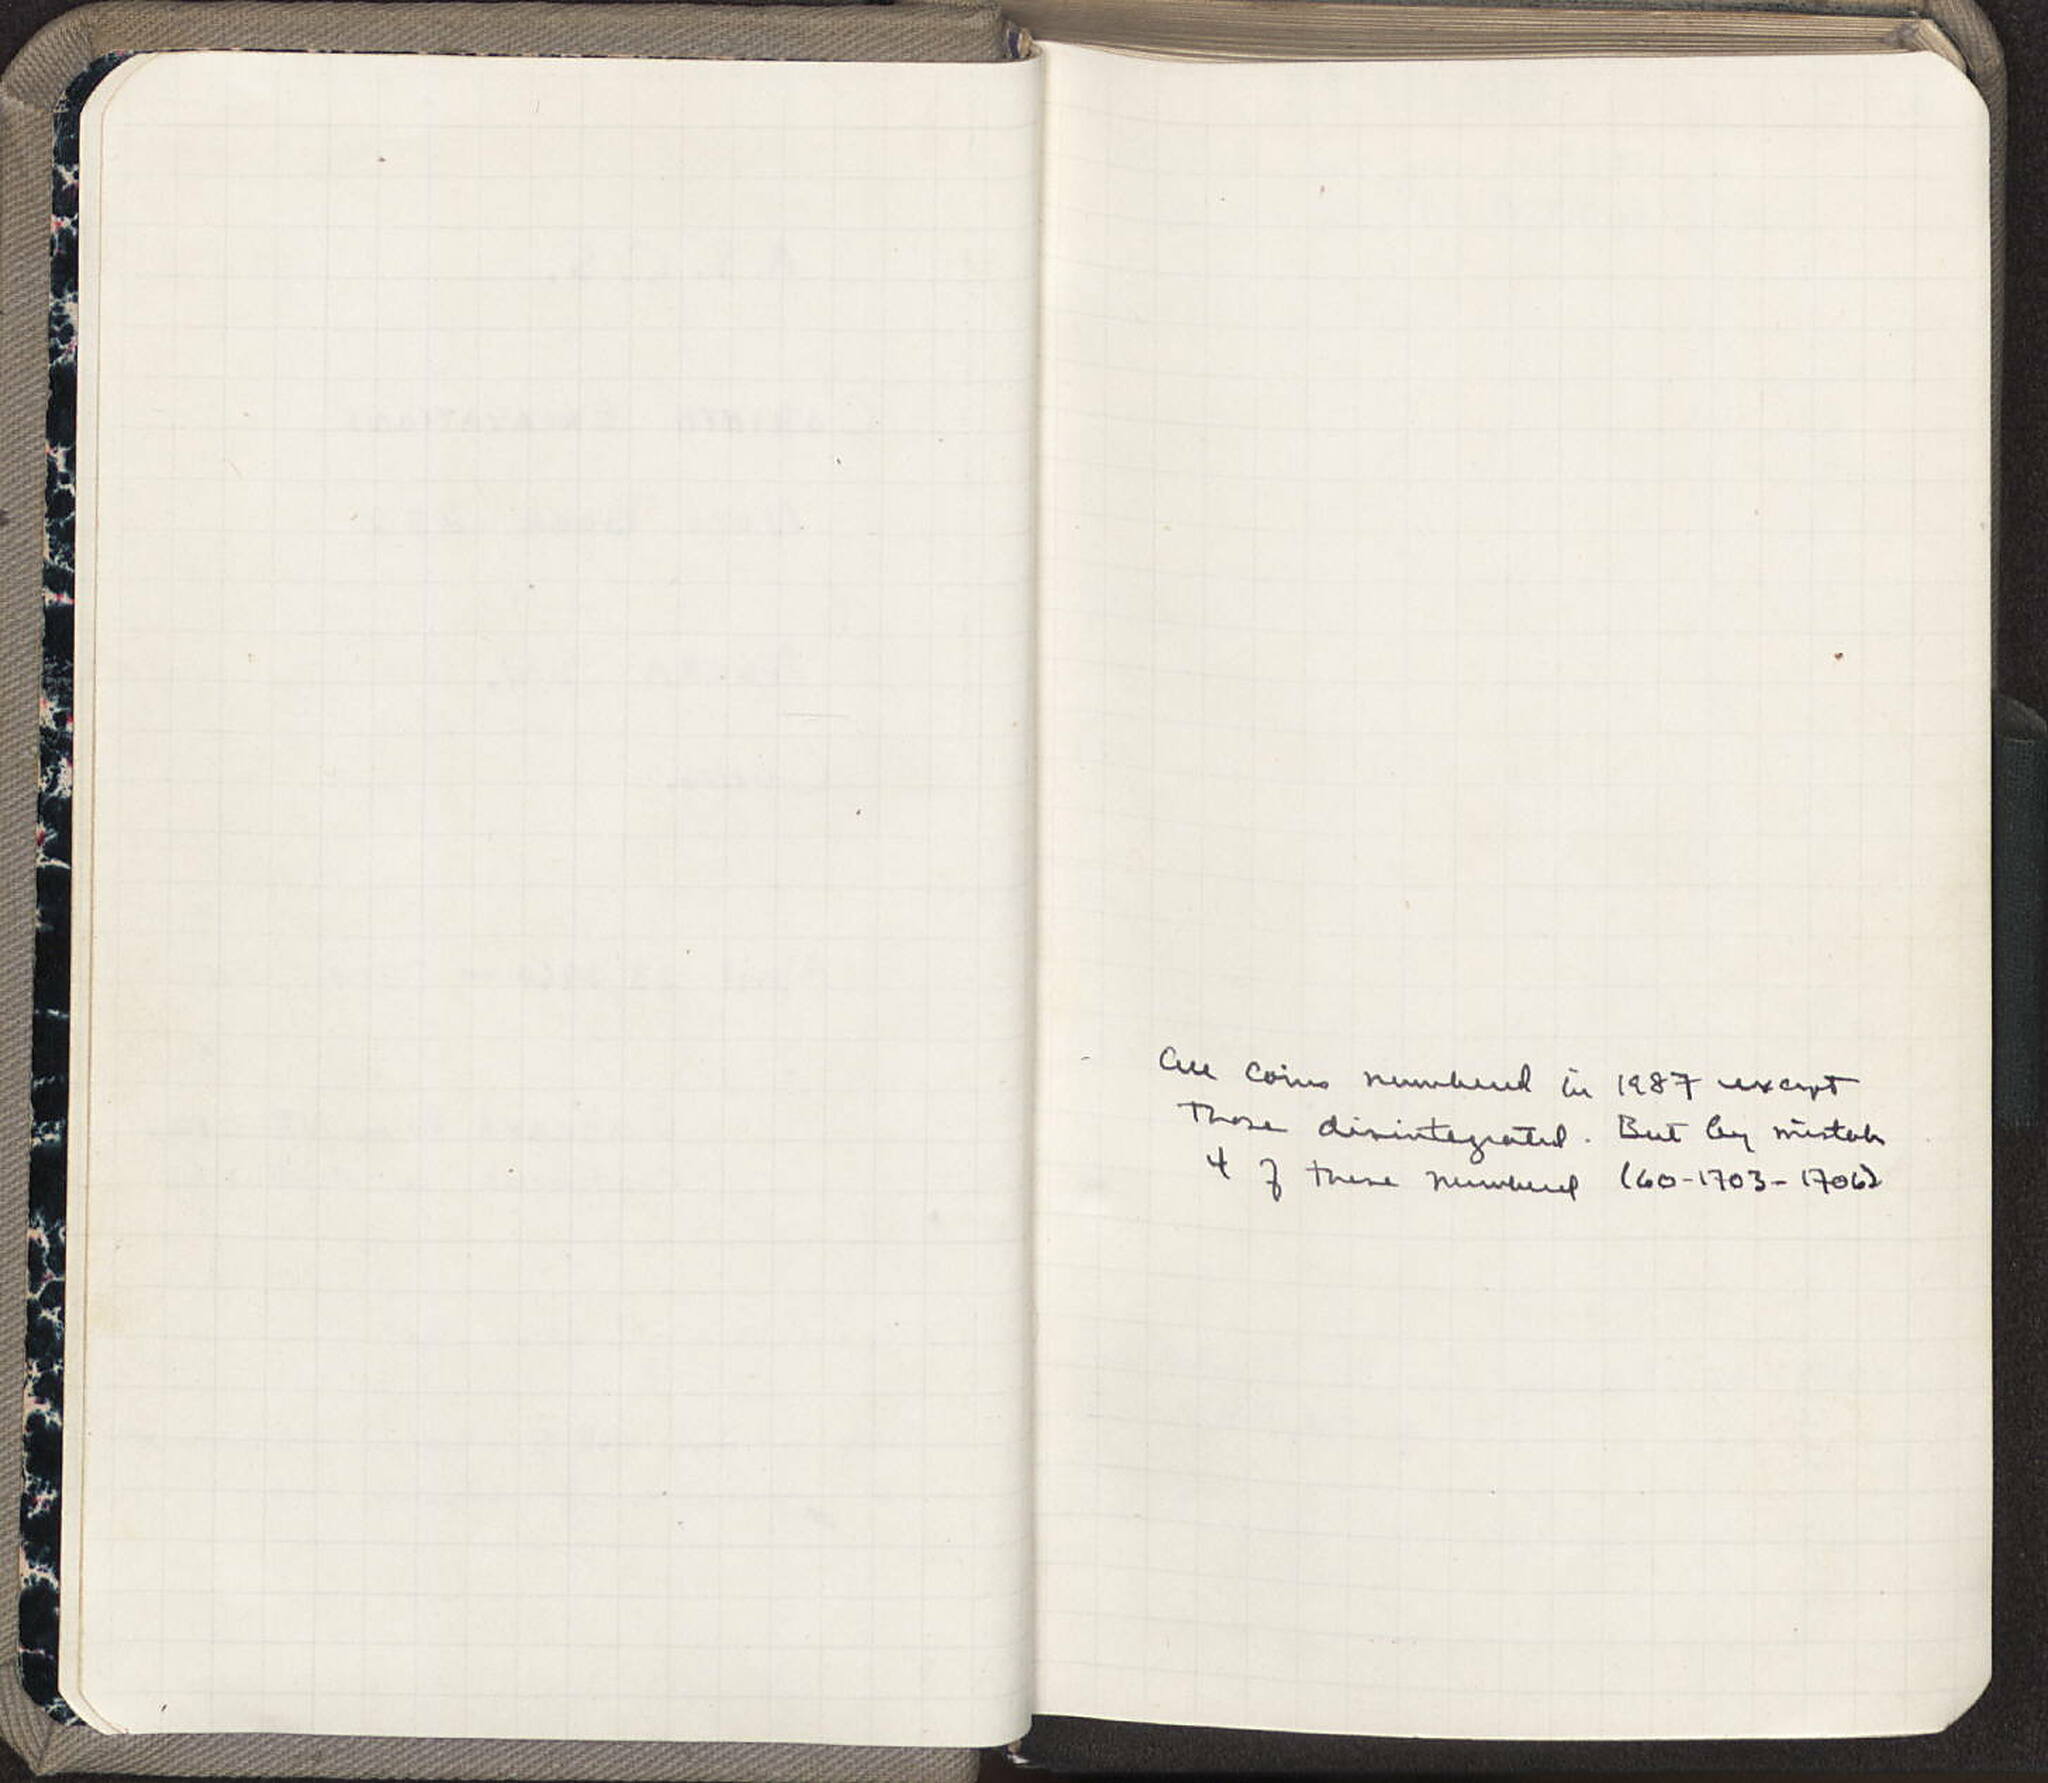 All coins numbered in 1987 except
those disintegrated. But by mistake
4 of these numbered (60-1703-1706)